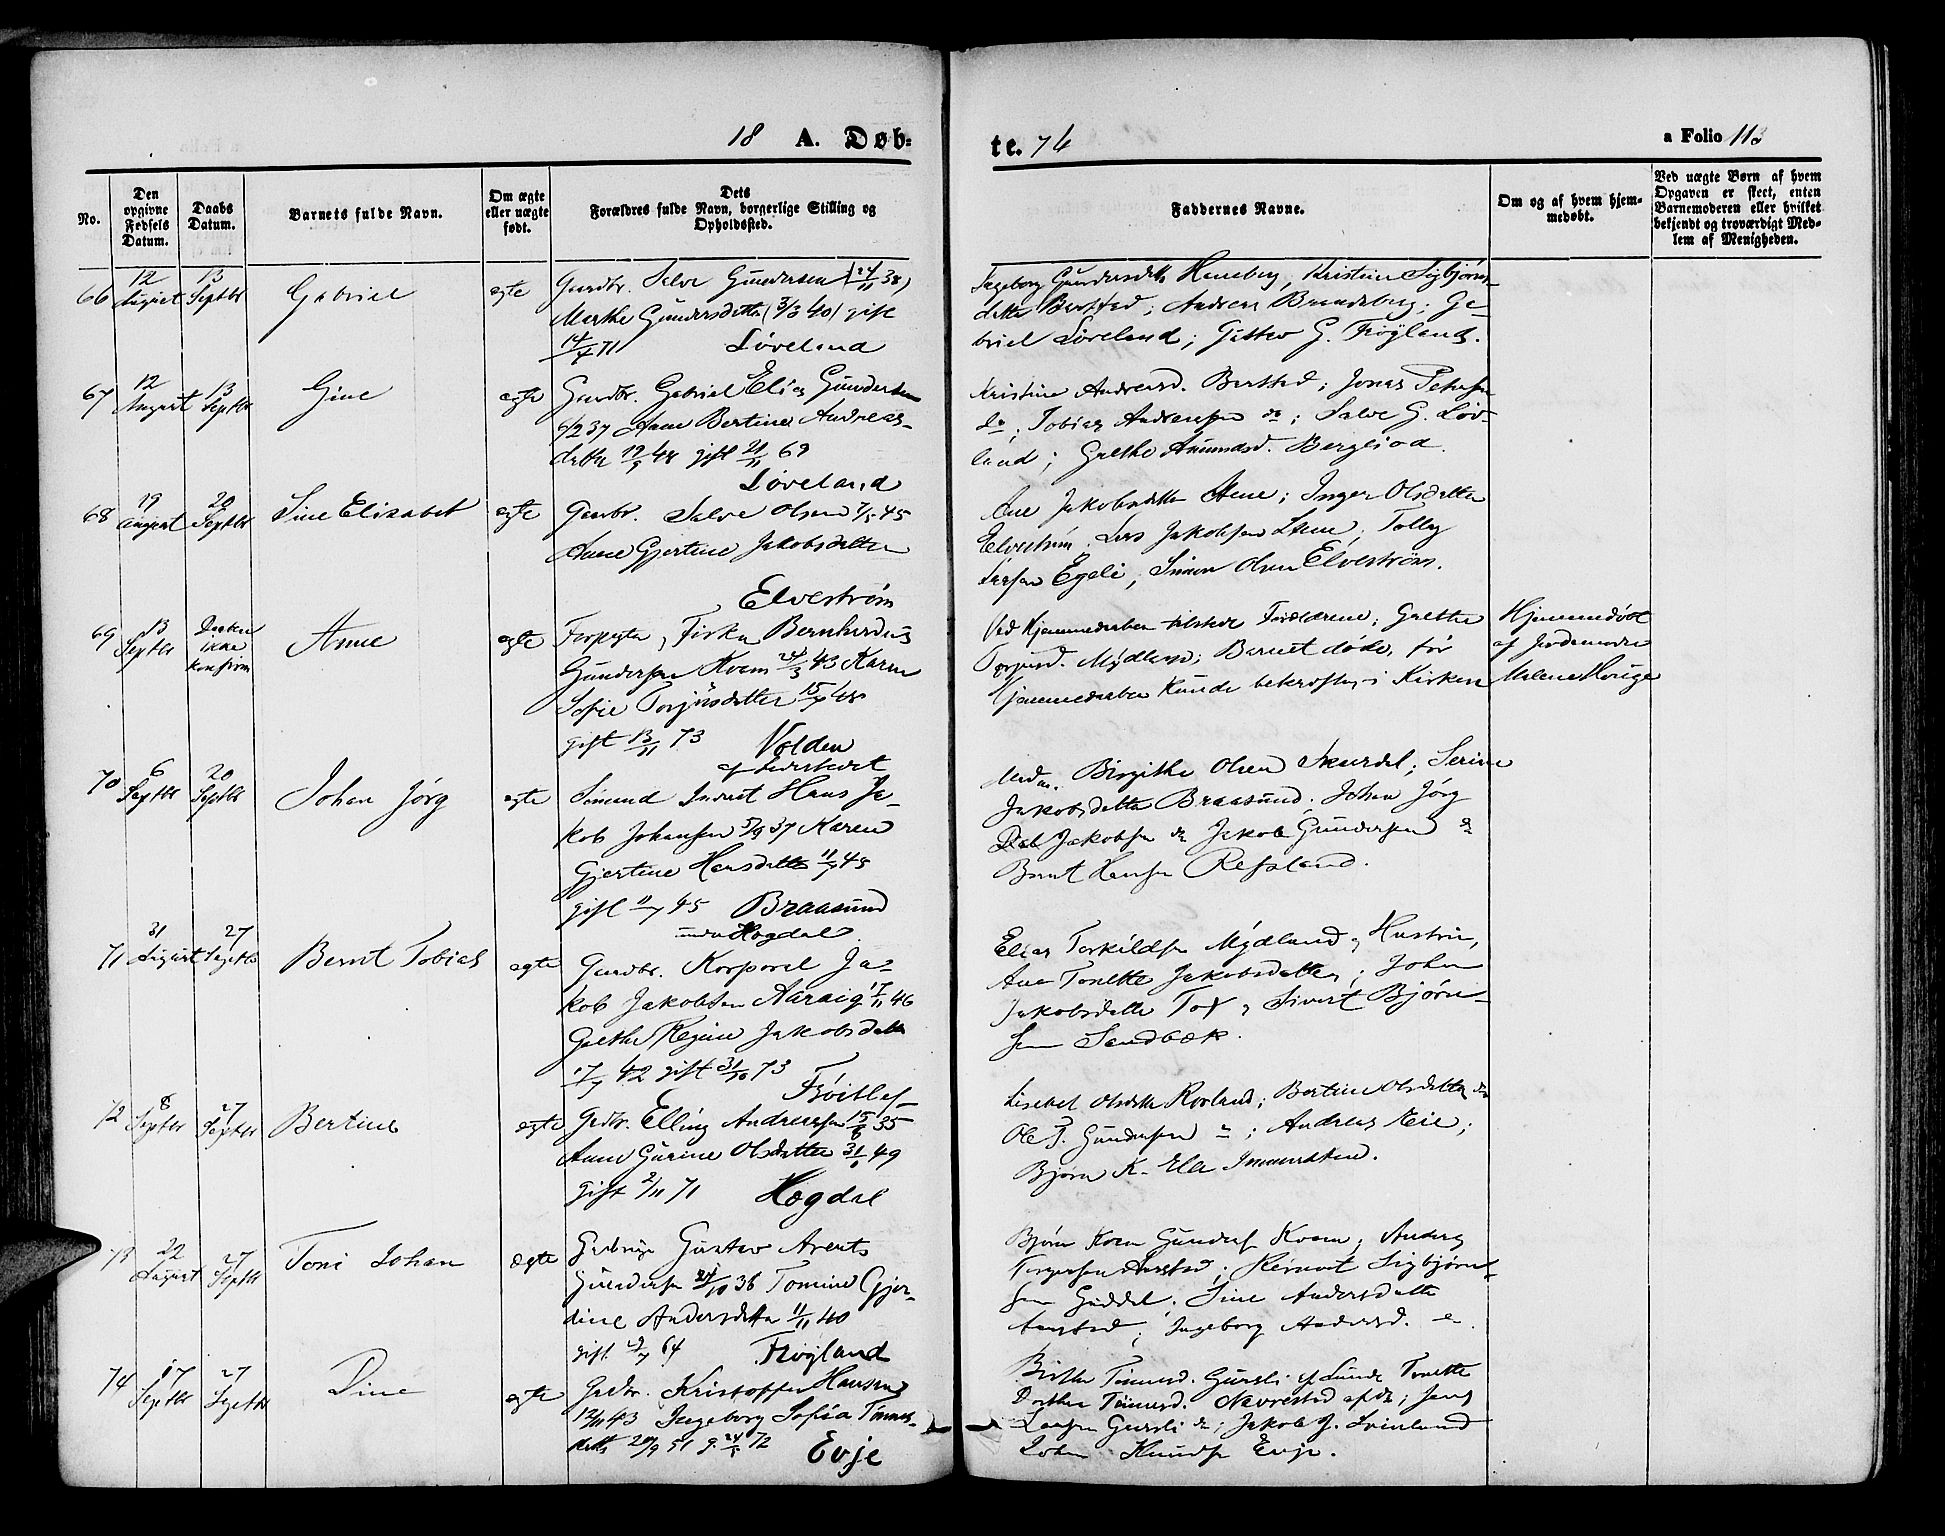 18 A. Døb=
te. 74
a Folio 113
No.
Den opgivne Fødsels Datum.
Daabs Datum.
Barnets fulde Navn.
Om ægte eller uægte født.
Dets Forældres fulde Navn, borgerlige Stilling og Opholdssted.
Faddernes Navne.
Om og af hvem hjem-
medøbt.
Ved uægte Børn af hvem
Opgaven er skeet, enten
Barnemoderen eller hvilket
bekjendt og troværdigt Med-
lem af Menigheden.
66 12 August 13 Septbr Gabriel egte
Gaardbr. Salve Gundersen (24/11 38)
Marthe Gundersdatter (3/3 40) gift
14/7 71 Løveland
Ingeborg Gundersdtr Haneberg, Kristine Sigbjørns-
datter Berstad; Andreas; Ga-
briel Løveland; Gustav G. Frøyland.
67 12 August 13 Septbr Gine egte
Gaardbr. Gabriel Elias Gundersen
37 Anne Bertine Andreas-
datter 19/5 48 gift 21/11 69
Løveland
Kristine Andreasd. Berstad; Jonas Petersen
do, Tobias Andreassen do; Salve G. Løv-
land; Grethe Amundsd. Bergliod.
68 19 August 20 Septbr Sine Elisabet egte
Gaardbr. Salve Olsen 7/5 45
Anne Gjertine Jakobsdatter
Elvestrøm
Ane Jakobsdatter Stene; Inger Olsdatter
Elvestrøm. Lars Jakobsen Stene; Tolly
Larsen Egeli; Simon Olsen Elvestrøm.
69 13 Septbr Daaben ikke konfirm Anne egte
Forpagter, Fisker Bernhardus
Gundersen Kvem 24/3 43 Karen
Sofie Torjusdatter 15/7 48
gift 13/11 73 Volden
Ved Hjemmedaaben tilstede Forældrene; Grethe
Torjusd. Mydland; Barnet døde, før
Hjemmedaaben kunde bekræftes i Kirken
Hjemmedøbt
af Jordemoder
Malene Houge
70 6 Septbr 20 Septbr Johan Jørg egte
Sømand Inderst Hans Ja-
kob Johansen 5/9 37 Karen
Gjertine Hansdatter 11/7 45
gift 11/7 45 Braasund
under Hogdal
Birgithe Olsen Skurdal; Serine
Jakobsdatter Braasund. Johan Jørg
Jakobsen do Jakob Gundersen do
Bernt Hansen Refsland.
71 31 August 27 Septbr Bernt Tobias egte
Gaardbr. Korporal Ja-
kob Jakobsen Aarsig 17/11 46
Grethe Regine Jakobsdatter
17/7 42 gift 31/10 73
Frøitlef
Elias Torkildsen Mydland og Hustru,
Ane Tonette Jakobsdatter; Johan
Jakobsdatter og Sivert Bjørn-
sen Sandbæk.
72 8 Septbr 27 Septbr Bertine ægte
Grdbr. Elling Andreassen 15/6 35
Anne Gurine Olsdatter 31/8 49
gift 2/11 71 Hogdal
Lisebet Olsdatter Rorland; Bertine Olsdatter do
Ole T. Gundersen do; Andreas Eie;
Bjørn K. Eie
73 22 August 27 Septbr Toni Johan ægte
Gustav Arents
Gundersen 24/10 36 Tomine Gjer-
dine Andersdatter 11/11 40
gift 64 Frøyland
Bjørn Kvem Gundersen Kvem; Anders
Torgersen Aarstad; Sigbjørn-
sen Guddal; Sine Andersdatter
Aarstad; Ingeborg Andersd. do.
74 17 Septbr 27 Septbr Dine egte
Grdbr. Kristoffer Hansen
12/11 43 Ingeborg Sofia Tønnes-
datter 20/9 51 g. 24/5 72 Evje
Birthe Tønnesd. Gursli af Lunde Tonette
Dorthea Tønnesd. Navrestad af do; Jens
Larsen Gursli do; Jakob J. Svinland
Johan Knudsen Evje.